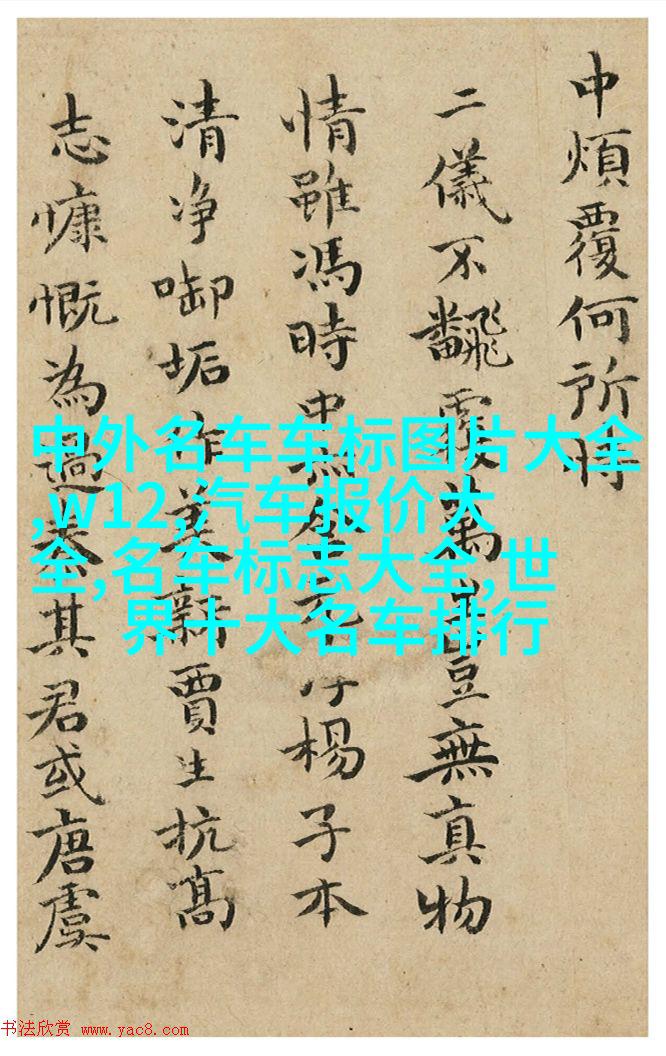 中煩覆何所時
二儀不飜覆萬豈無真物
情雖馮時中無楊子本
清净啣垢作美新賈生抗髙
志慷慨為過秦其君或唐虞
中外名车车标图片大全
,w12,汽车报价大
全,名车标志大全,世
界十大名车排行
书法欣赏 www.yac8.com